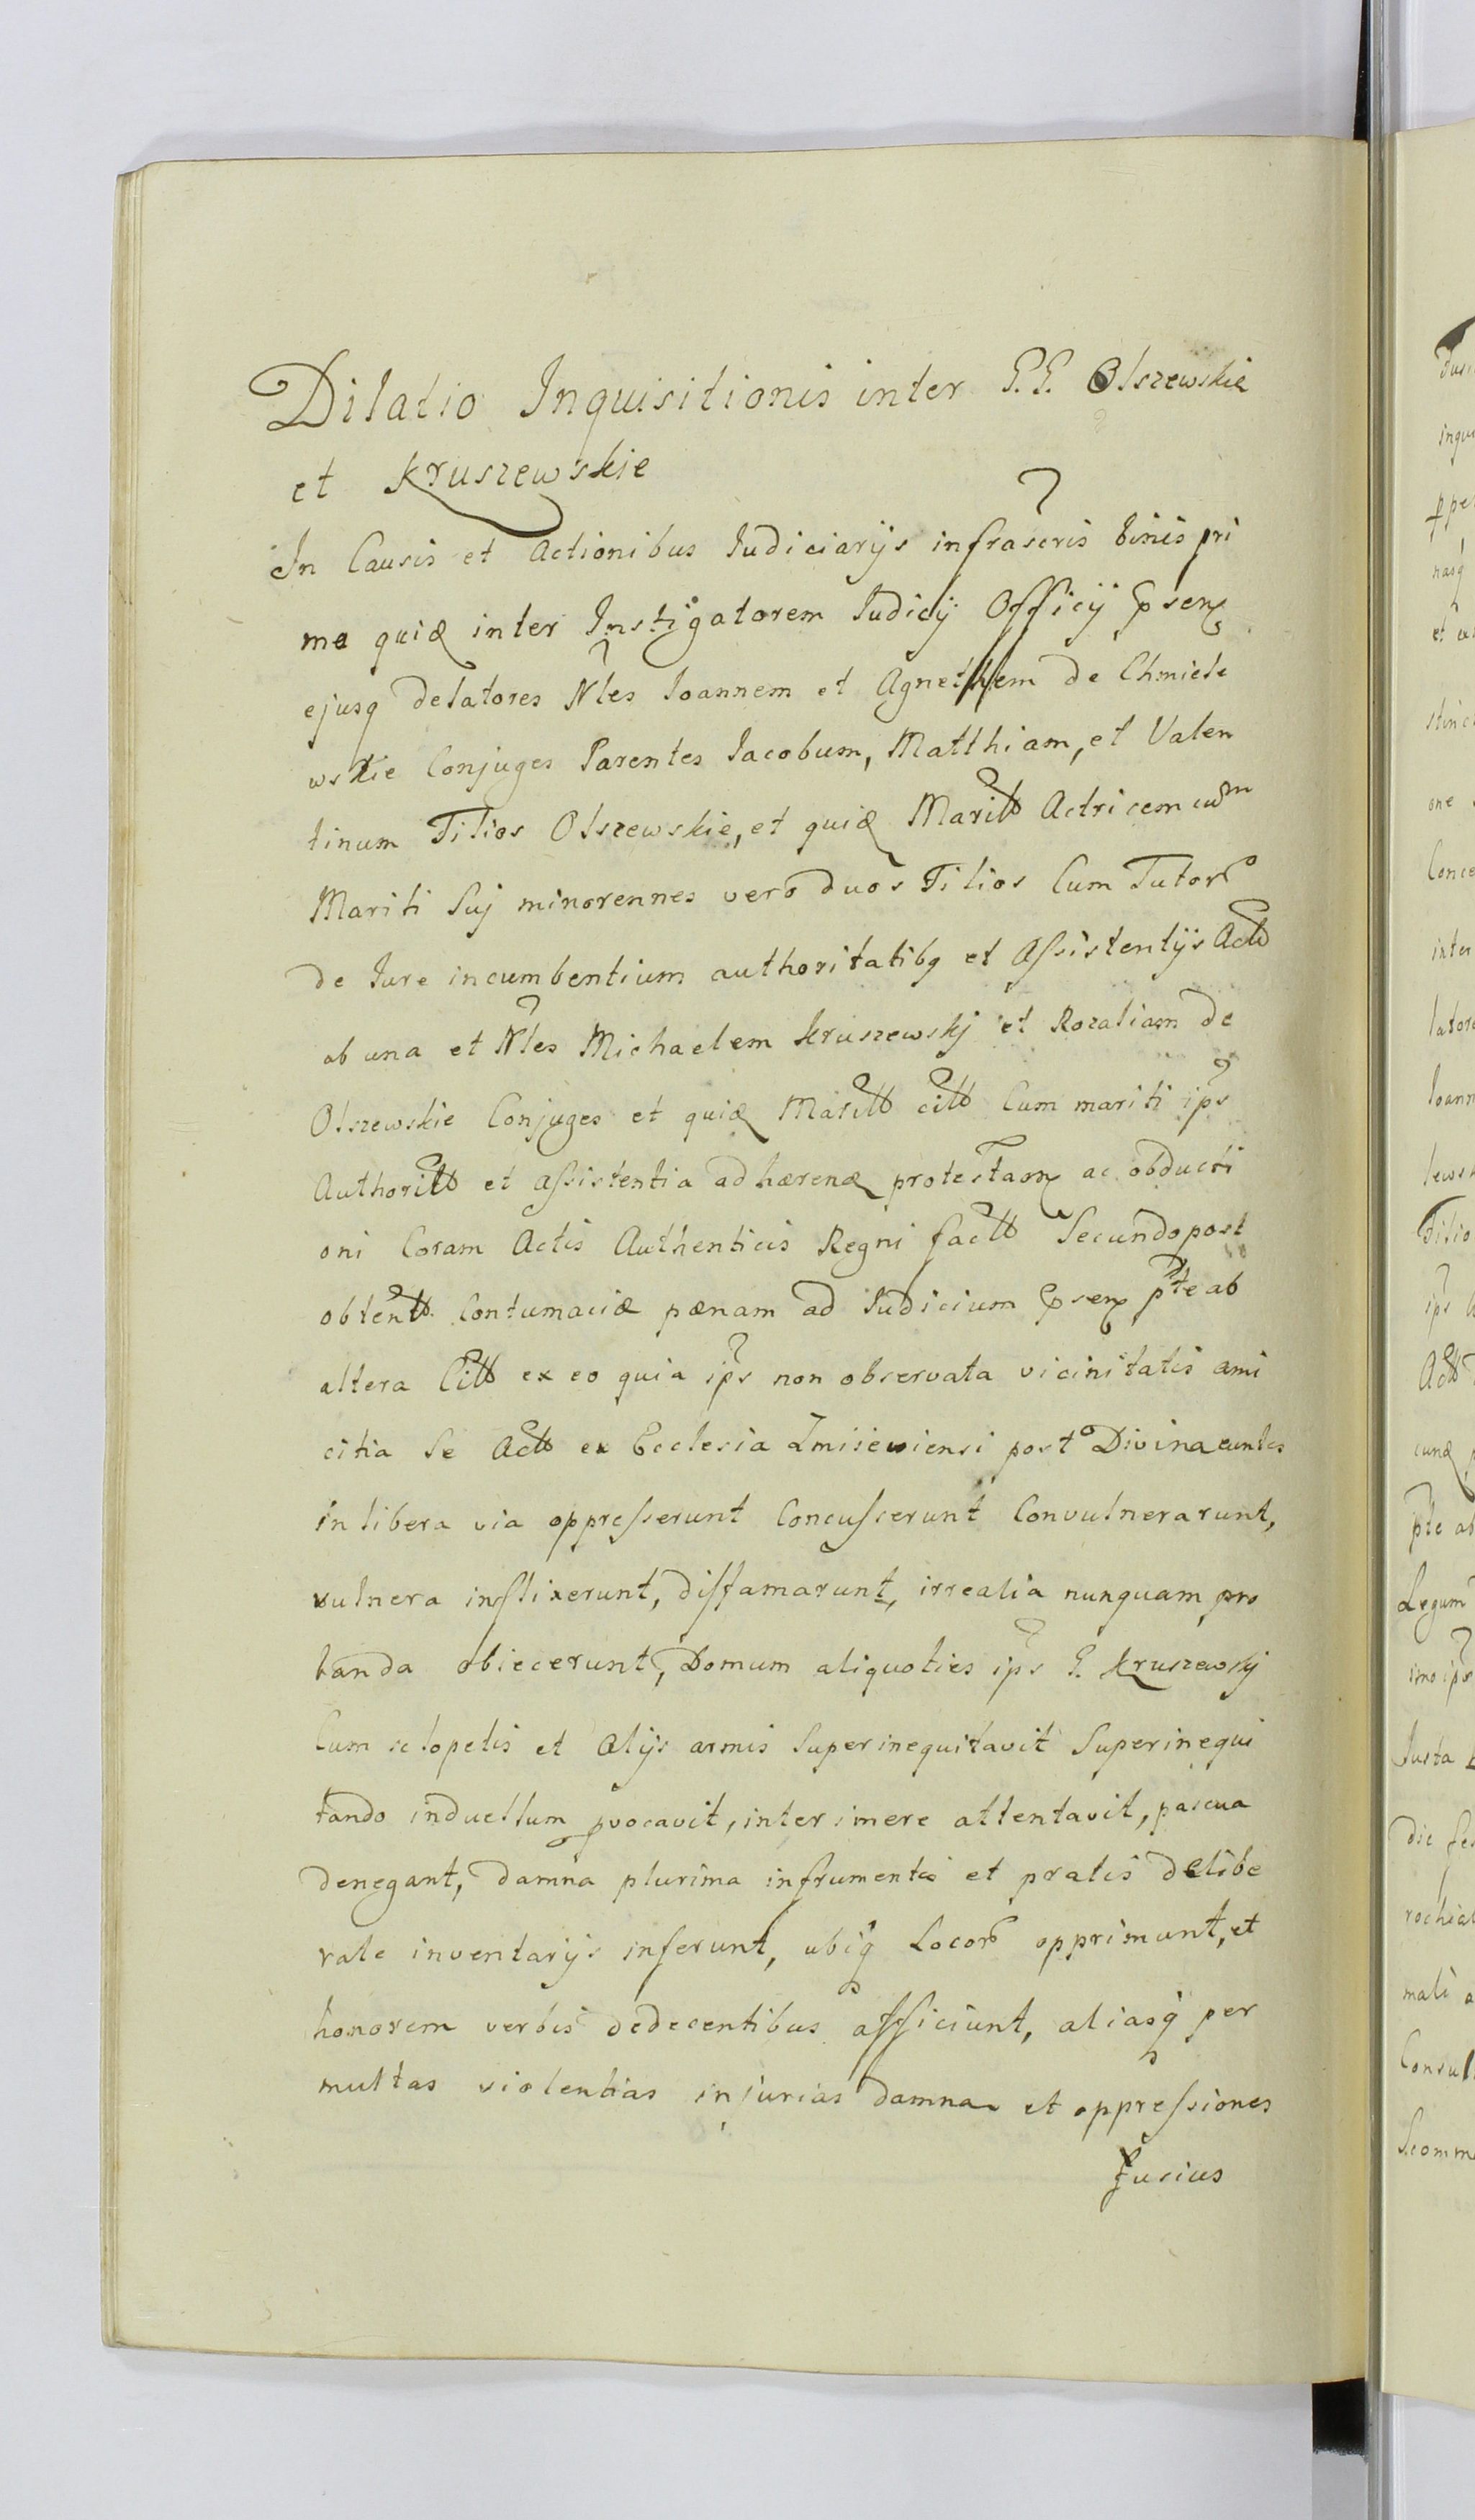 Dilatio Inquisitionis inter G. G. Olszewskie
et Kruszewskie
In Causis et Actionibus Judiciarijs infrascris binis pri
ma quidȩ inter Instigatorem Judicij Officij psenȩ
ejusq delatores Nles Joannem et Agnethem de Chmiele
wskie Conjuges Parentes Jacobum, Matthiam, et Valen
tinum Filios Olszewskie, et quidȩ Maritt Actricem cum
Mariti Suj minorennes vero duos Filios Cum Tutor
de Jure incumbentium authoritatibq et Assistentijs Actt
ab una et Nles Michaelem Kruszewskj et Rozaliam de
Olszewskie Conjuges et quidȩ Maritt citt Cum mariti ips
Authoritt et assistentia adhærendȩ protestaonȩ ac obducti
oni Coram Actis Authenticis Regni factt Secundo post
obtentt Contumaciæ pænam ad Judicium psenȩ pte ab
altera Citt ex eo quia ips non observata vicinitatis ami
citia Se Actt ex Ecclesia Zmiieviensi post Divina euntes
in libera via oppresserunt Concusserunt Convulnerarunt,
vulnera inflixerunt, diffamarunt, irrealia nunquam pro
banda obiecerunt, Domum aliquoties ips G. Kruszewskj
Cum sclopetis et Alijs armis Superinequitavit Superinequi
tando in duellum pvocavit, interimere attentavit, pascua
denegant, damna plurima in frumentis et pratis delibe
rate inventarijs inferunt, ubiq Locor opprimunt, et
honorem verbis dedecentibus afficiunt, aliasq per
multas violentias injurias damna et oppressiones
fusius